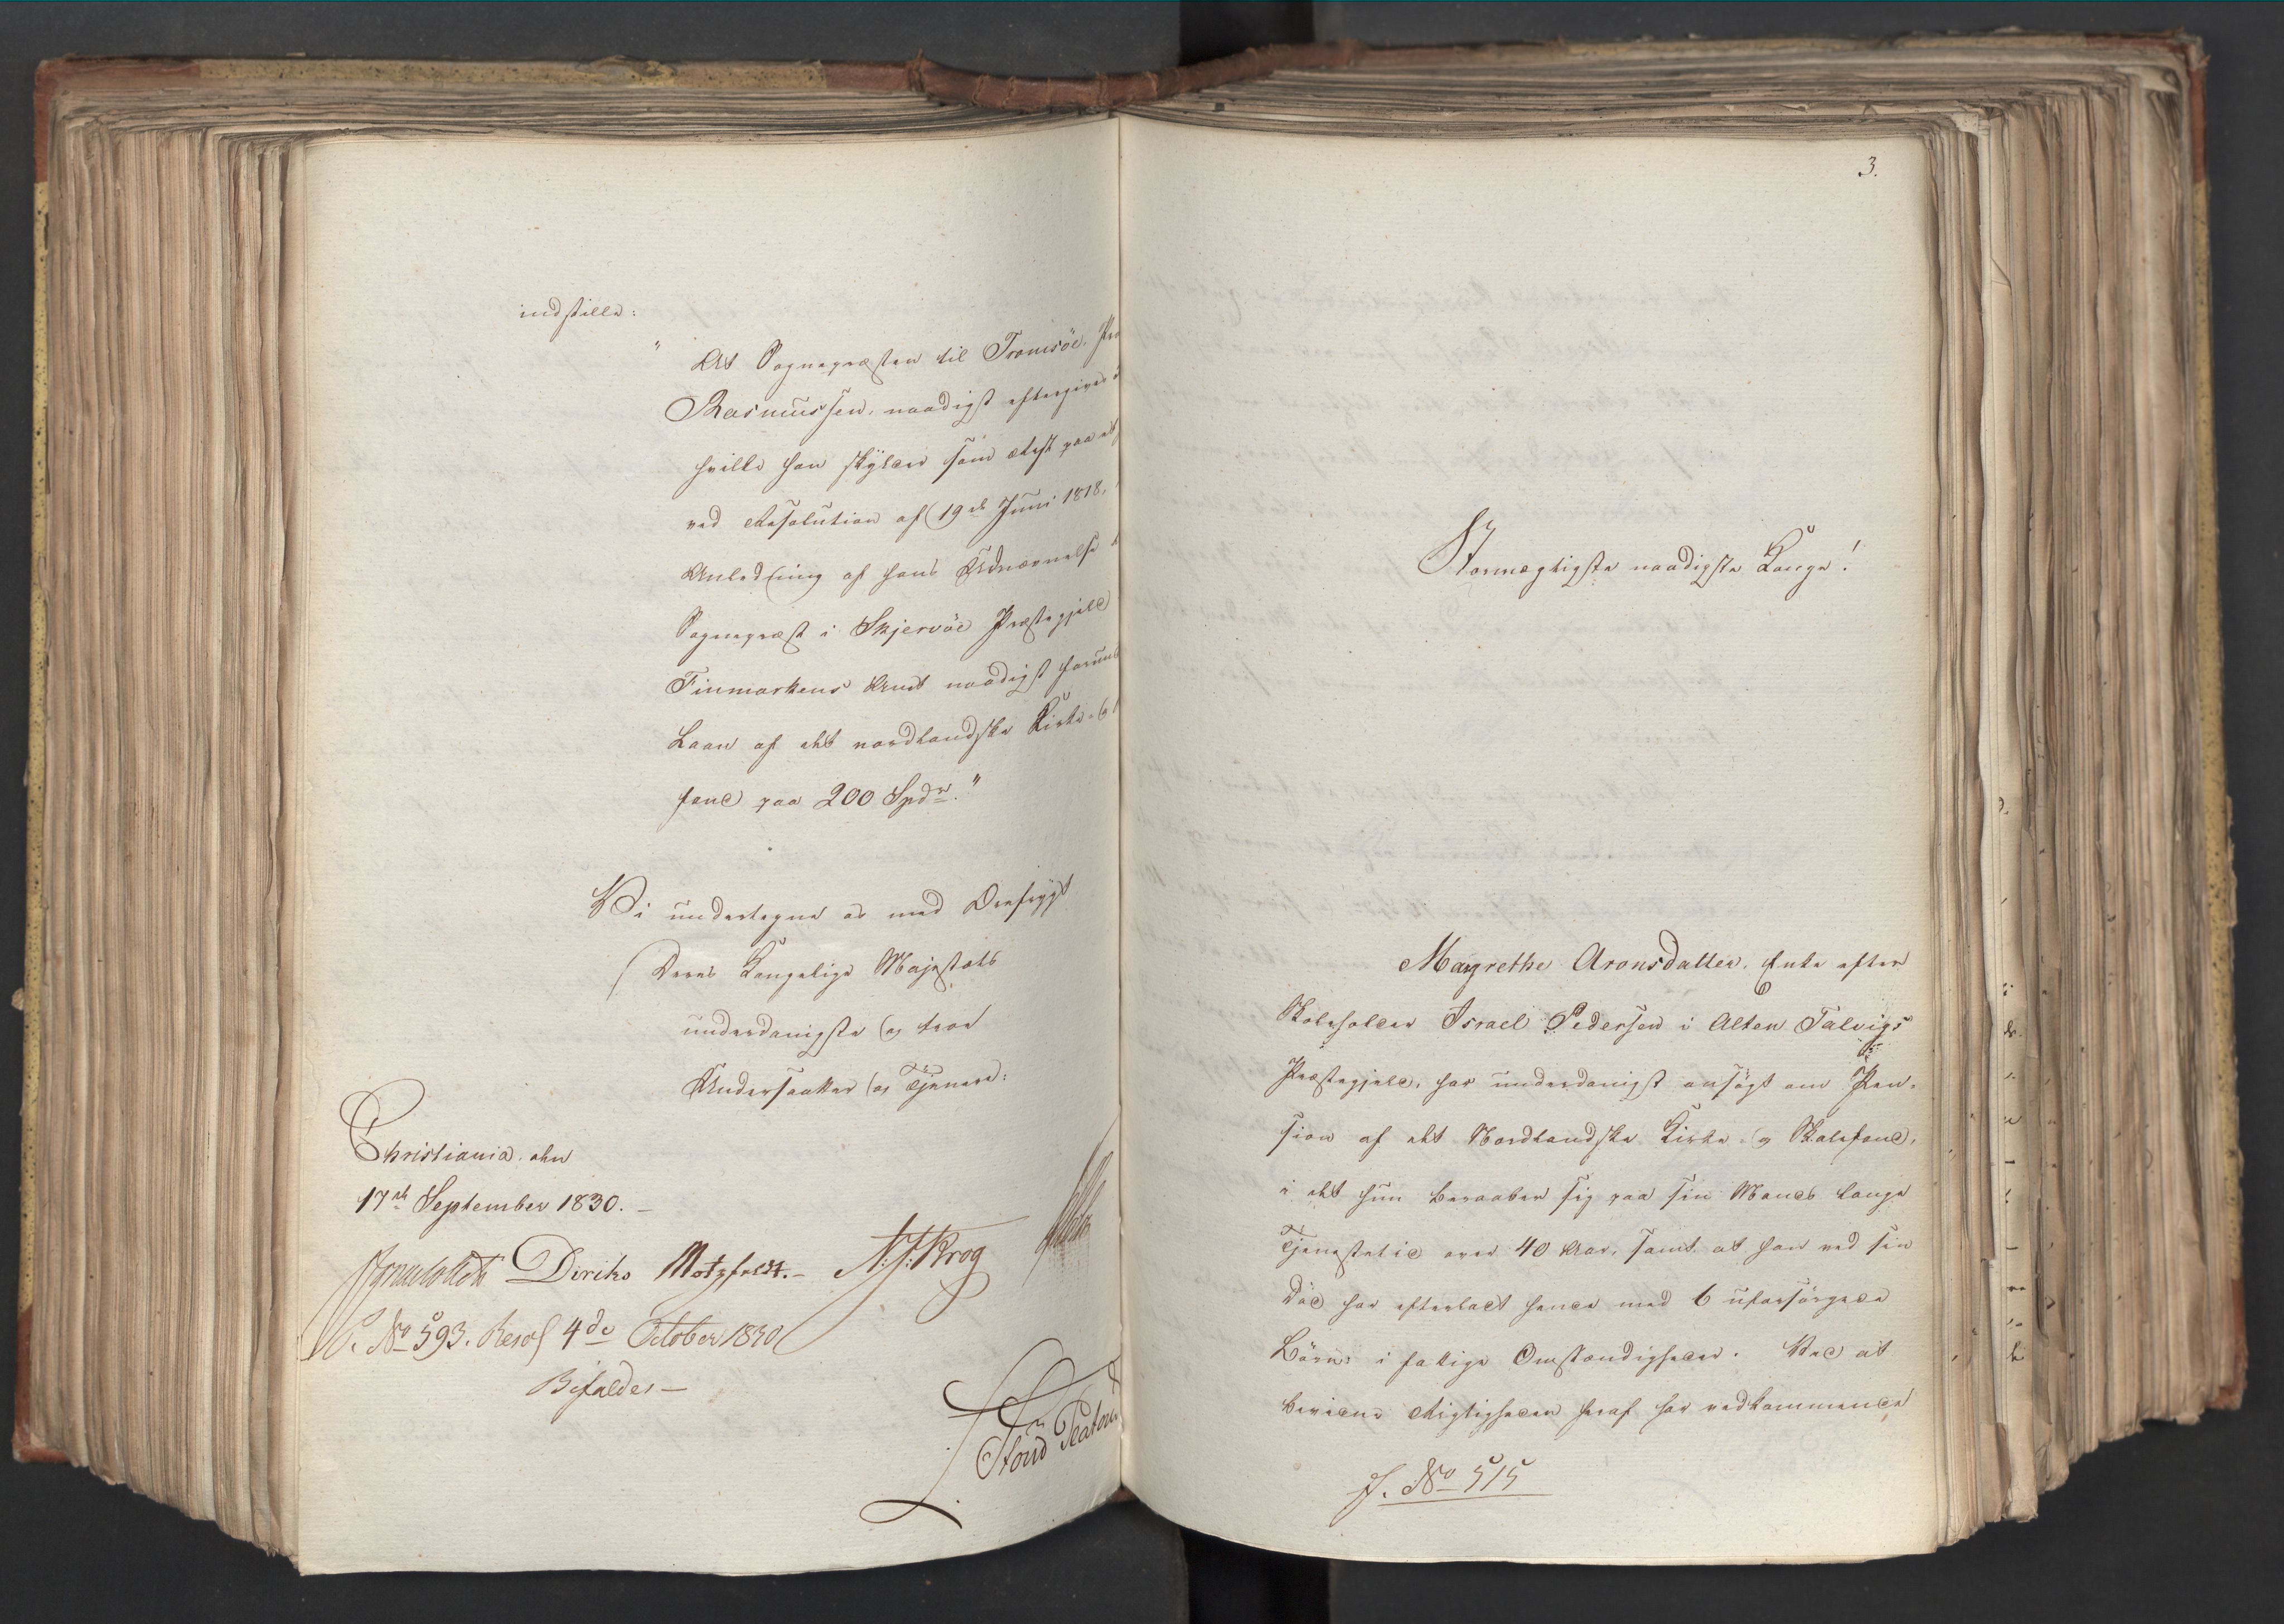 indstille:
"At Sognepræsten til Tromsöe, Pro
Rasmussen, naadigst eftergives d
hvilke han skylder som Rest paa et
ved Resolution af 19de Juni 1818,
Anledning af hans Udnævnelse t
Sognepræst i Skjervöe Præstegjeld
Finmarkens Amt naadigst forund
Laan af det nordlandske Kirke- og
fond paa 200 Spdr."
Vi undertegne os med Ærefrygt
Deres Kongelige Majestæts
underdanigste og troe
Undersaatter og Tjenere:
Christiania, den
17de September 1830. –
Diriks Motzfeldt. – N: J: Krog
P. No 593. Resol 4de October 1830
Bifaldes –
3.
Stormægtigste naadigste Konge!
Margrethe Aronsdatter, Enke efter
Skoleholder Israel Pedersen i Alten Talvigs
Præstegjeld, har underdanigst ansögt om Pen-
sion af det Nordlandske Kirke- og Skolefond,
i det hun beraaber sig paa sin Mands lange
Tjenestetid over 40 Aar, samt at han ved sin
Död har efterladt hende med 6 uforsörgede
Börn i fattige Omstændigheder. Ved at
bevidne Rigtigheden heraf har vedkommende
J. No 515